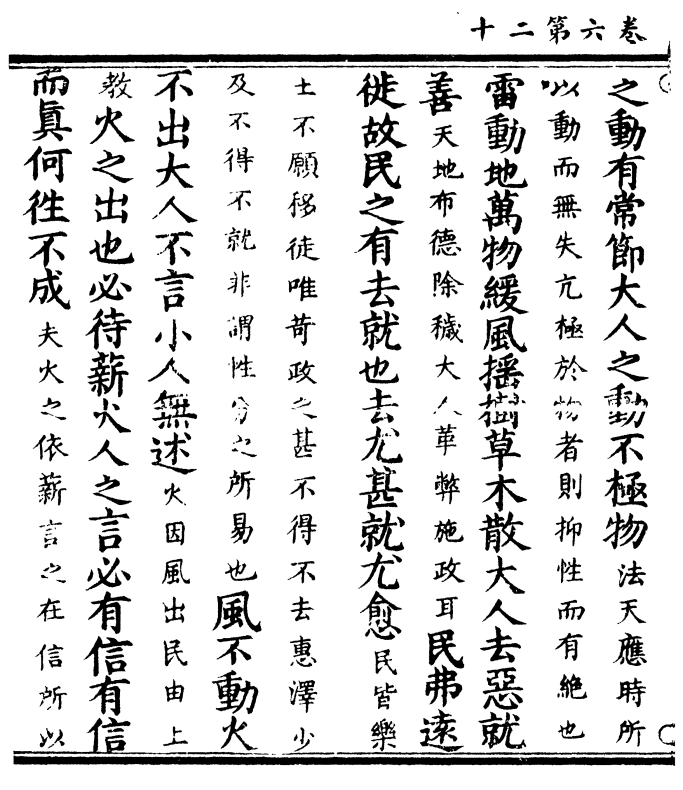 卷六第二十
之動有常節大人之動不極物法天應時所
以動而無失亢極於物者則抑性而有絶也
雷動地萬物緩風搖樹草木散大人去惡就
善天地布德除穢大人革弊施政耳民弗遠
徙故民之有去就也去尤甚就尤愈民皆樂
土不願移徙唯苛政之甚不得不去惠澤少
及不得不就非謂性分之所易也風不動火
不出大人不言小人無述火因風出民由上
教火之出也必待薪火人之言必有信有信
而眞何徃不成夫火之依薪言之在信所以